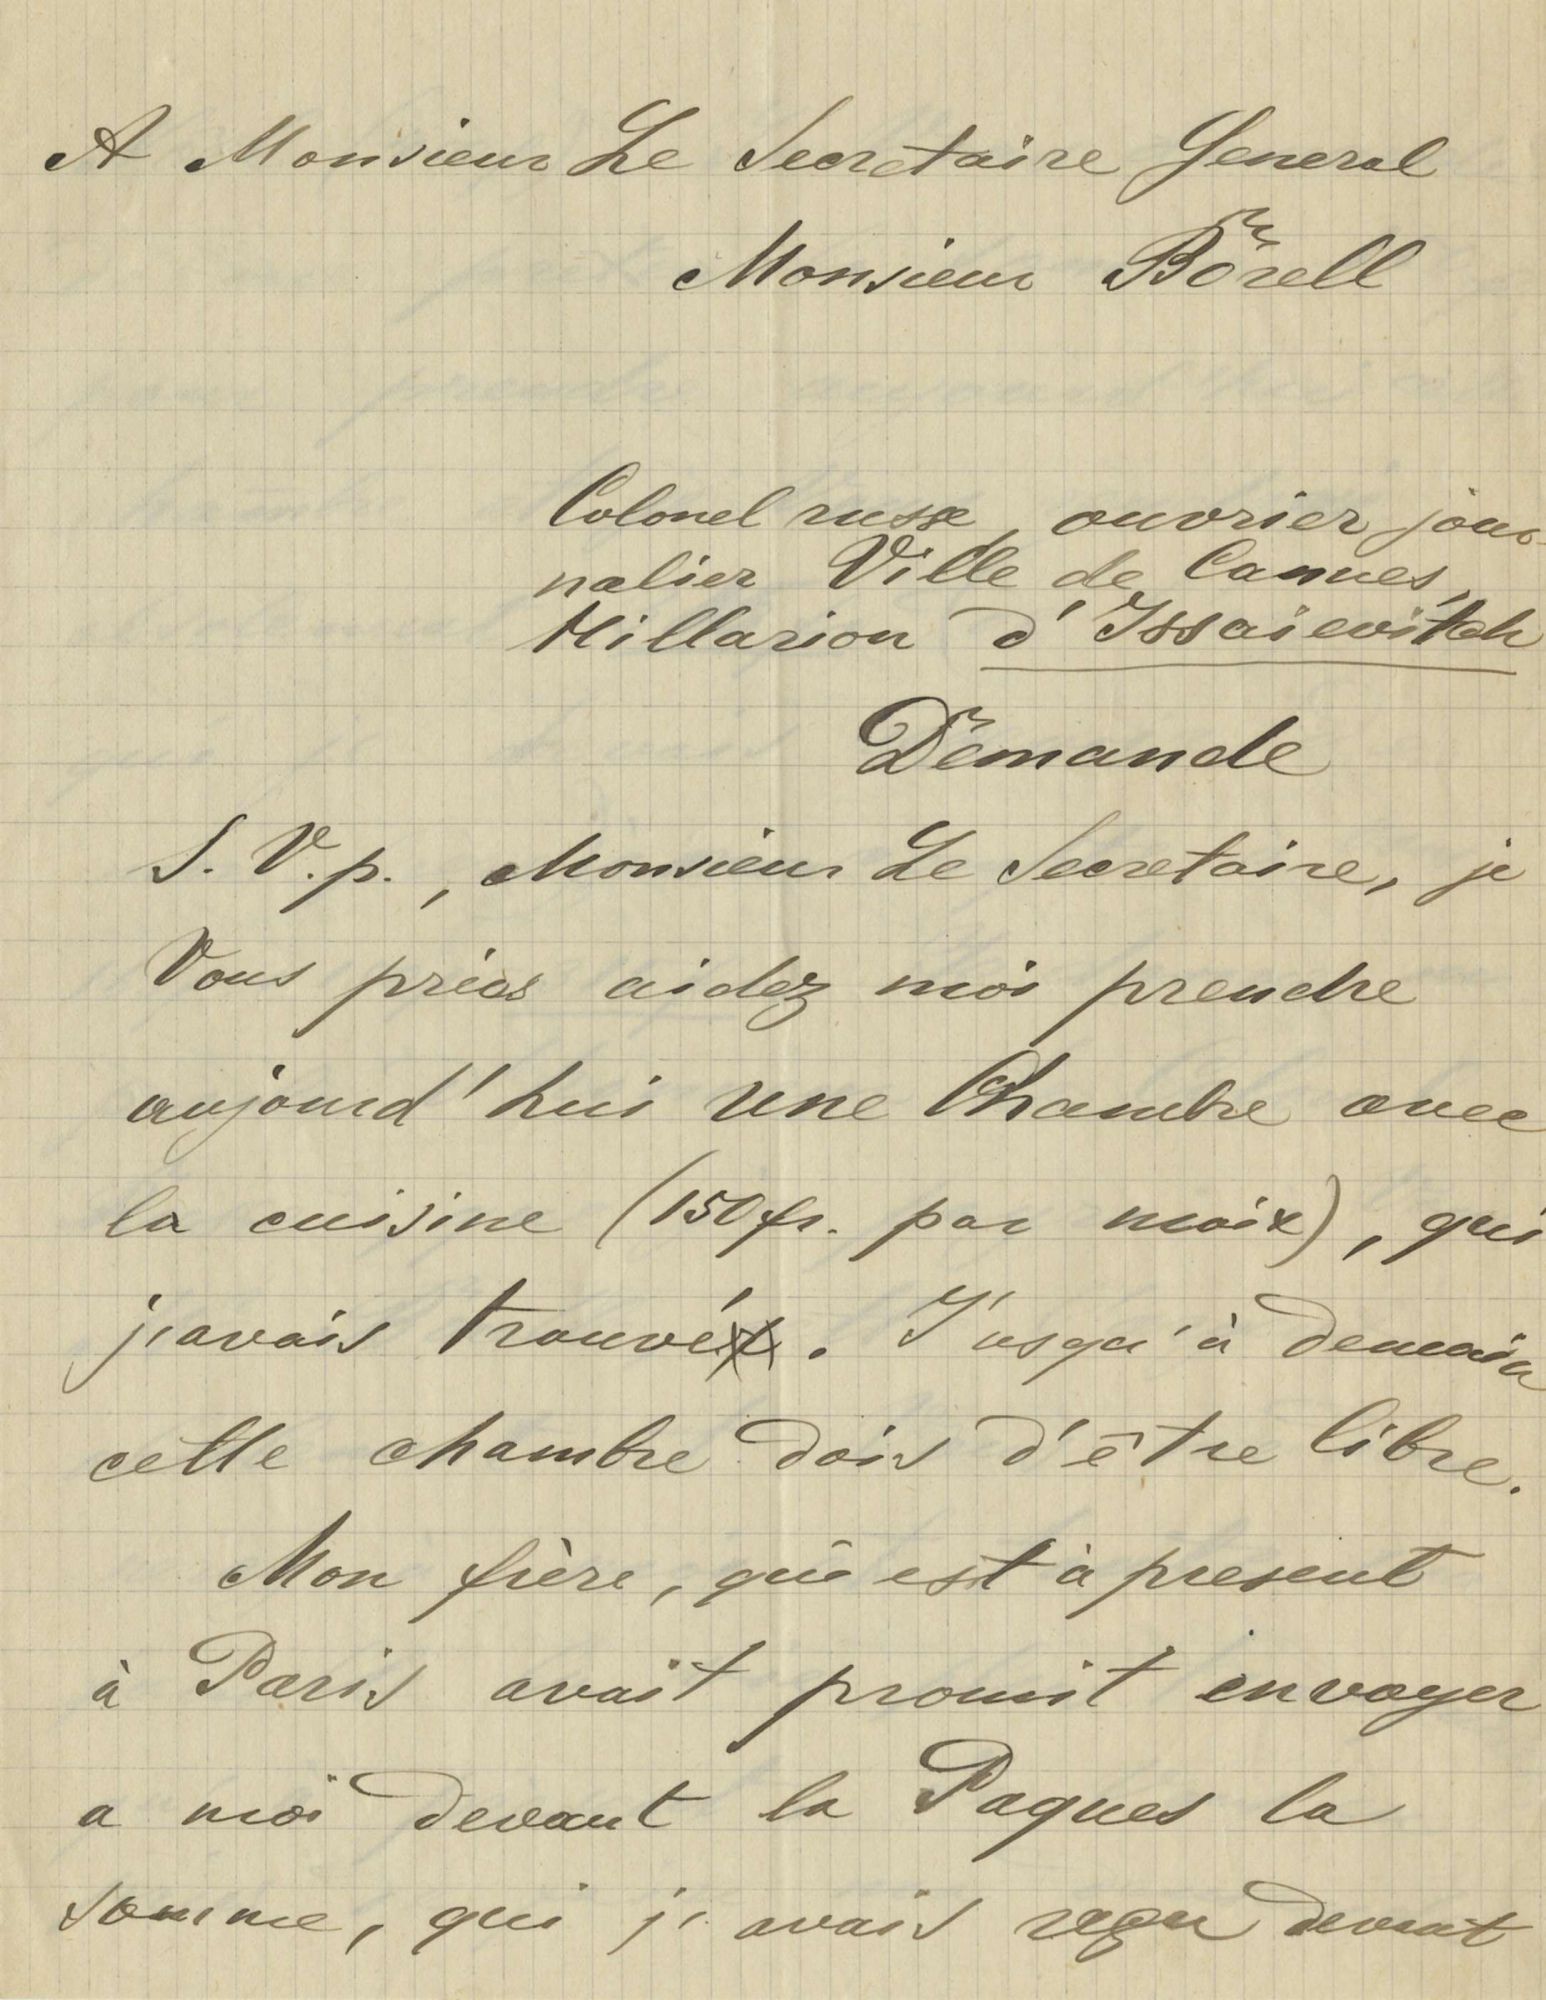 A Monsieur Le Secretaire General
Monsieur Borell
Colonel russe, ouvrier jour-
nalier Ville de Cannes,
Hillarion d'Issaiewitch
Demande
S. V. p., Monsieur Le Secretaire, je
Vous pries aidez moi prendre
aujourd'hui une Chambre avec
la cuisine (150 fr. par moix), qui
j'avais trouvé. J'usqu'à demain
cette chambre dois d'être libre.
Mon frère, qui est à present
à Paris avait promit envoyer
a moi devant la Paques la
somme, qui j'avais reçu devant